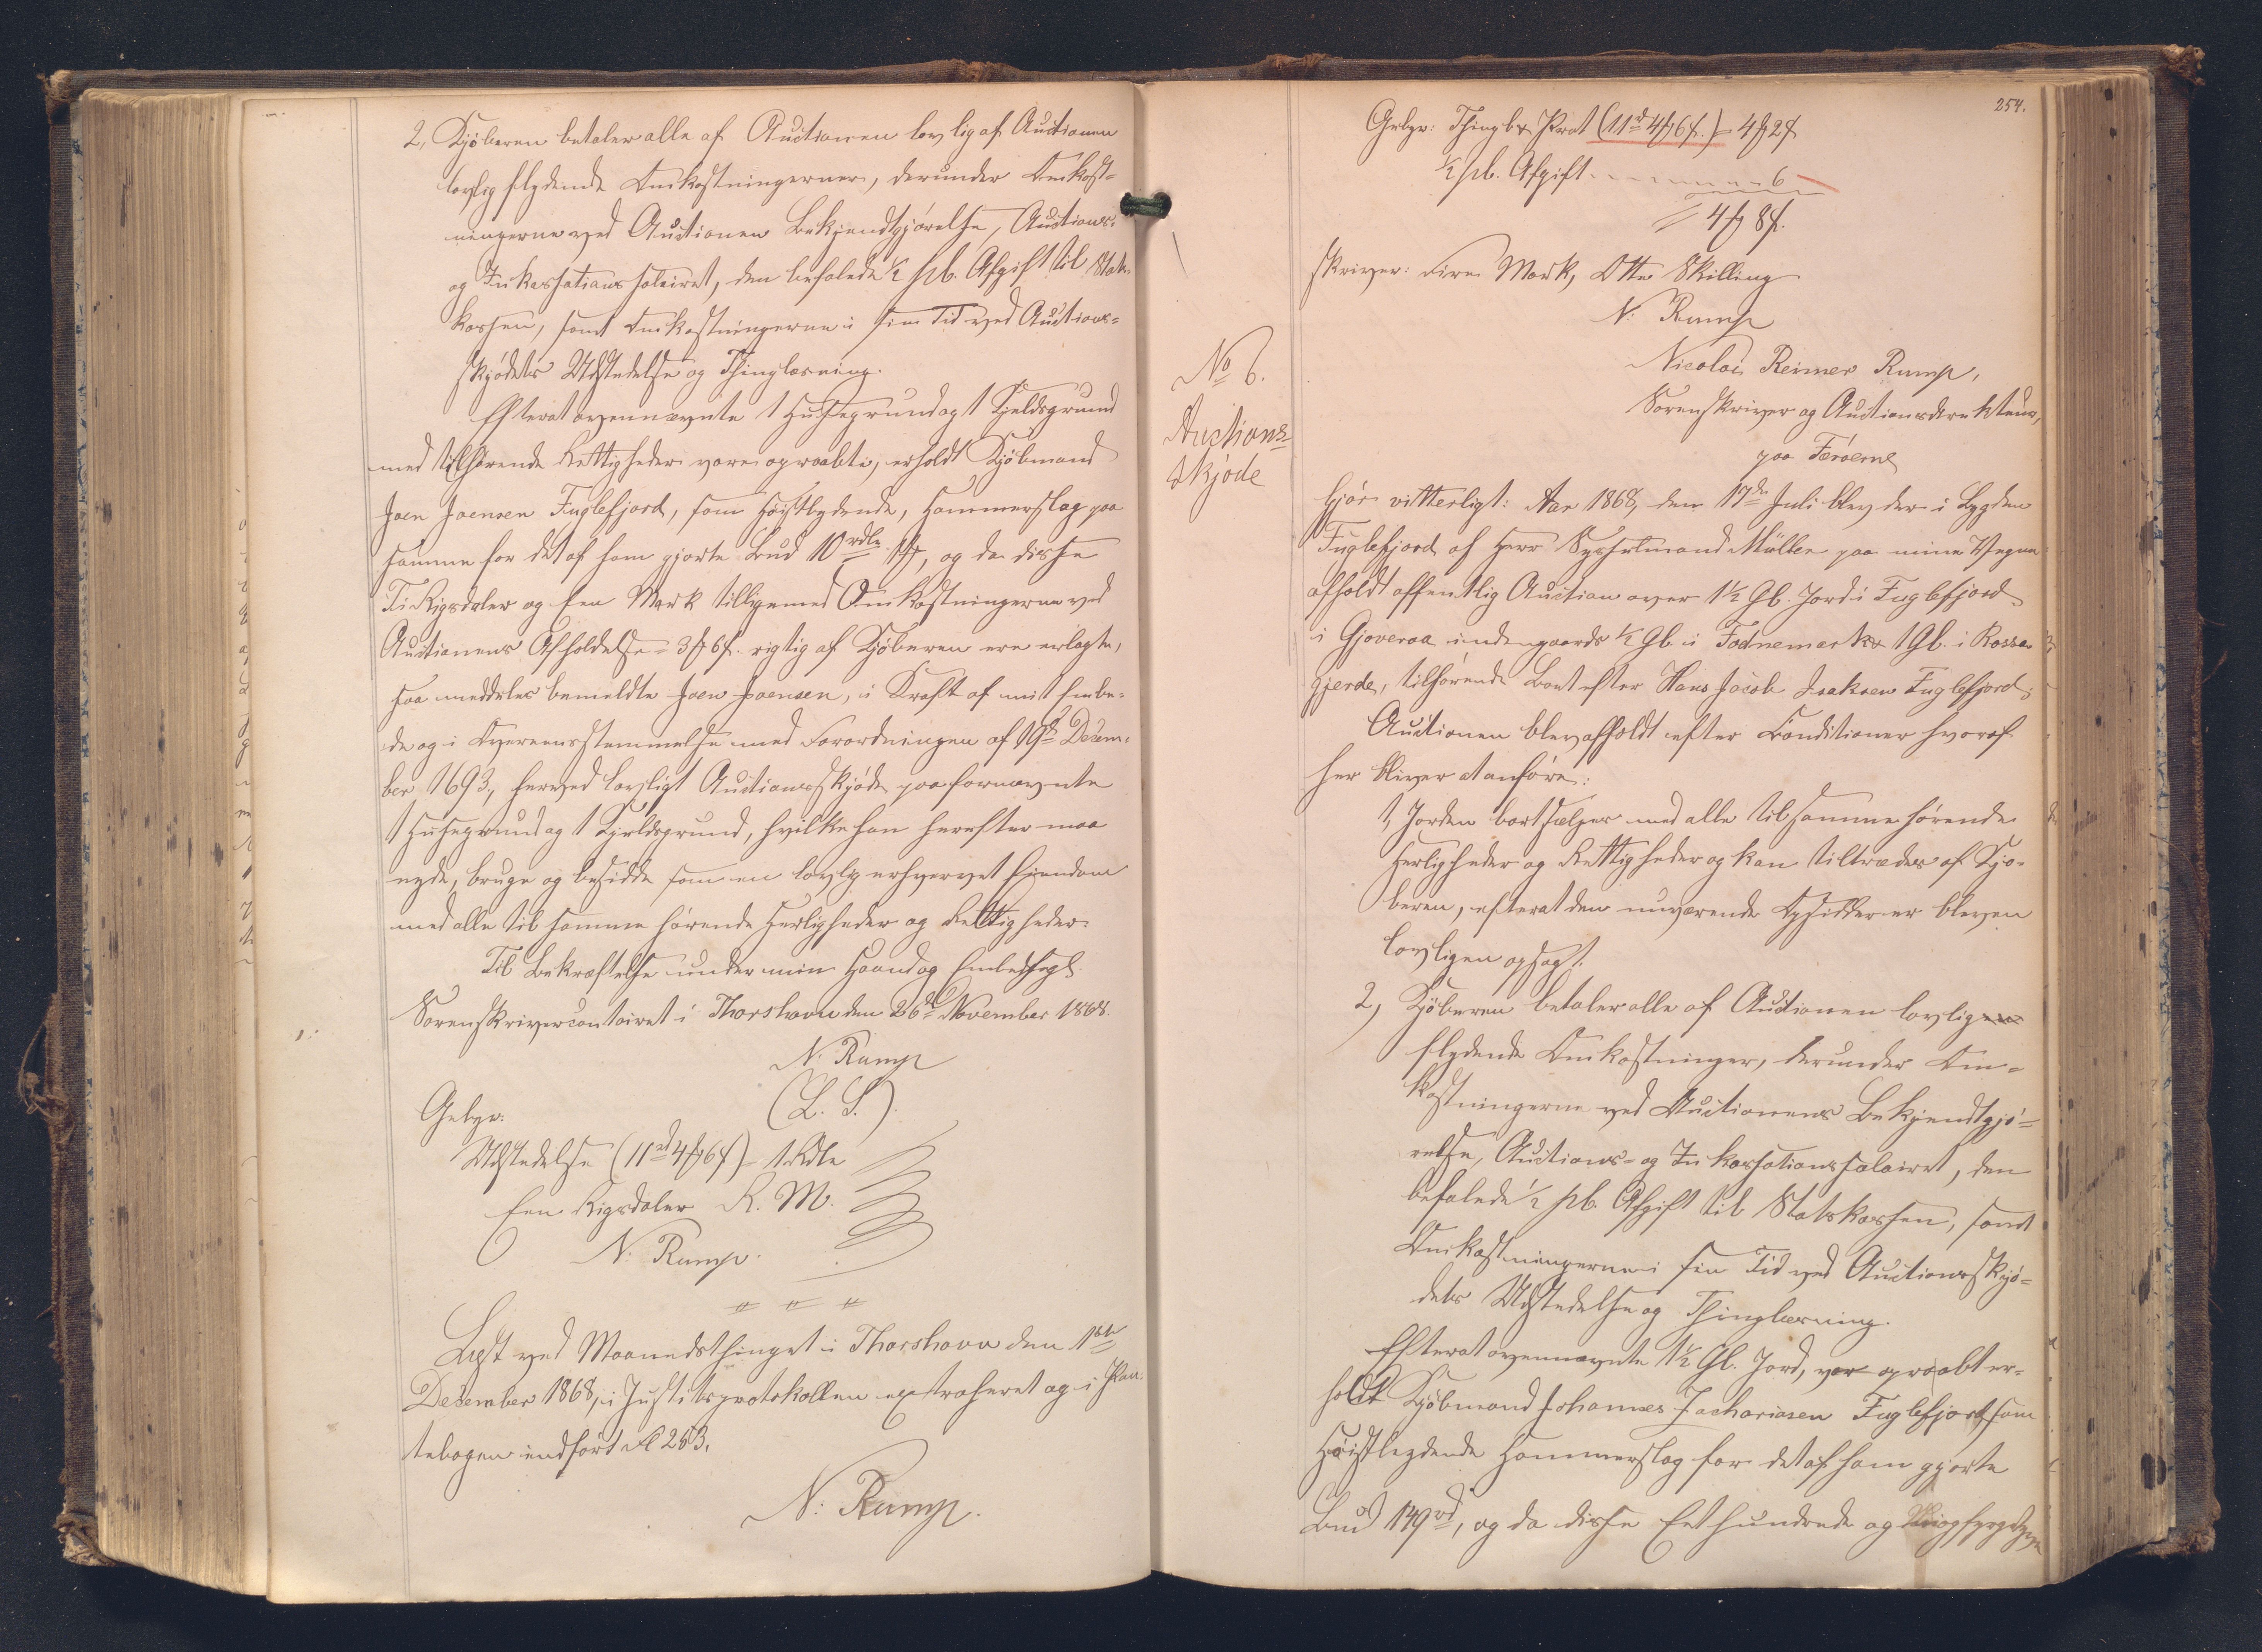 2, Kjöberen betaler alle af Auctionen lovlig af Auctionen
lovlig flydende Omkostningerne, derunder Omkost-
ningerne ved Auctionen Bekjendtgjörelse, Auctions-
og Inkassationssalairet, den befalede ½ pCt. Afgift til Stats-
kassen, samt Omkostningerne i sin Tid ved Auctions-
skjödets Udstedelse og Thinglæsning.
Efterat ovennævnte 1 Husegrund og 1 Kjeldsgrund
med tilhörende Rettigheder vare opraabte, erholdt Kjöbmand
Joen Joensen Fuglefjord, som Höistbydende, Hammerslag paa
samme for det af ham gjorte Bud 10 rdlr 1 ₻, og da disse
Ti Rigsdaler og Een Mark tilligemed Omkostningerne ved
Auctionens Afholdelse = 3 ₻ 6 ſ. rigtig af Kjöberen ere erlagte,
saa meddeles bemeldte Joen Joensen, i Kraft af mit Embe-
de og i Overeensstemmelse med Forordningen af 19de Decem-
ber 1693, herved lovligt Auctionsskjöde paa fornævnte
1 Husegrund og 1 Kjeldsgrund, hvilke han herefter maa
nyde, bruge og besidde som en lovlig erhvervet Eiendom
med alle til samme hörende Herligheder og Rettigheder.
Til Bekræftelse under min Haand og Embedssegl.
Sorenskrivercontoiret i Thorshavn den 26de November 1868.
N. Rump
(L. S.)
Gebyr:
Udstedelse (11 rd 4 ₻ 6 ſ) = 1 Rdlr
Een Rigsdaler R. M.
N. Rump.
Læst ved Maanedsthinget i Thorshavn den 1ste
December 1868, i Justitsprotokollen extraheret og i Pan-
tebogen indfört Fol 253.
N. Rump.
254.
Gebyr: Thingl. & Prot (11 rd 4 ₻ 6 ſ.) = 4 ₻ 2 ſ
½ pCt. Afgift - - - - - - 6 -
= 4 ₻ 8 ſ.
skriver: Fire Mark, Otte Skilling
N. Rump
No 6.
Auctions-
skjöde
Nicolai Reimer Rump,
Sorenskriver og Auctionsdirekteur,
paa Færöerne
Gjör vitterligt: Aar 1868, den 17de Juli blev der i Bygden
Fuglefjord af Herr Sysselmand Müller paa mine Vegne
afholdt offentlig Auction over 1½ Gl. Jord i Fuglefjord
i Gjoveraa indengaards ½ Gl. i Fodnemark & 1 Gl. i Rossa-
gjerde, tilhörende Boet efter Hans Jacob Isaksen Fuglefjord;
Auctionen blev afholdt efter Conditioner hvoraf
her bliver at anföre:
1, Jorden bortsælges med alle til samme hörende
Herligheder og Rettigheder og kan tiltrædes af Kjö-
beren, efterat den nuværende Opsidder er bleven
lovligen opsagt.
2, Kjöberen betaler alle af Auctionen lovlig
flydende Omkostninger, derunder Om-
kostningerne ved Auctionens Bekjendtgjö-
relse, Auctions- og Inkassationssalairet, den
befalede ½ pCt. Afgift til Statskassen, samt
Omkostningerne i sin Tid ved Auctionsskjö-
dets Udstedelse og Thinglæsning.
Efterat ovennævnte 1½ Gl. Jord, var opraabt er-
holdt Kjöbmand Johannes Zachariasen Fuglefjord, som
Höistbydende Hammerslag for det af ham gjorte
Bud 149 rd, og da disse Eet hundrede og